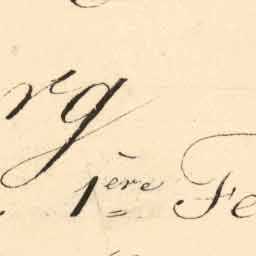 rg
1ère Fe